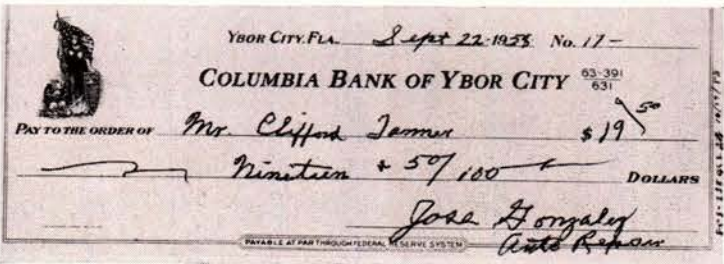 YBOR CITY, FLA. Sept 22 1958 No. 17-
COLUMBIA BANK OF YBOR CITY 63-391
631
PAY TO THE ORDER OF Mr. Clifford Tanner $ 19 50
Nineteen + 50/100 DOLLARS
Jose Gonzalez
Auto Repair
PAYABLE AT PAR THROUGH FEDERAL RESERVE SYSTEM